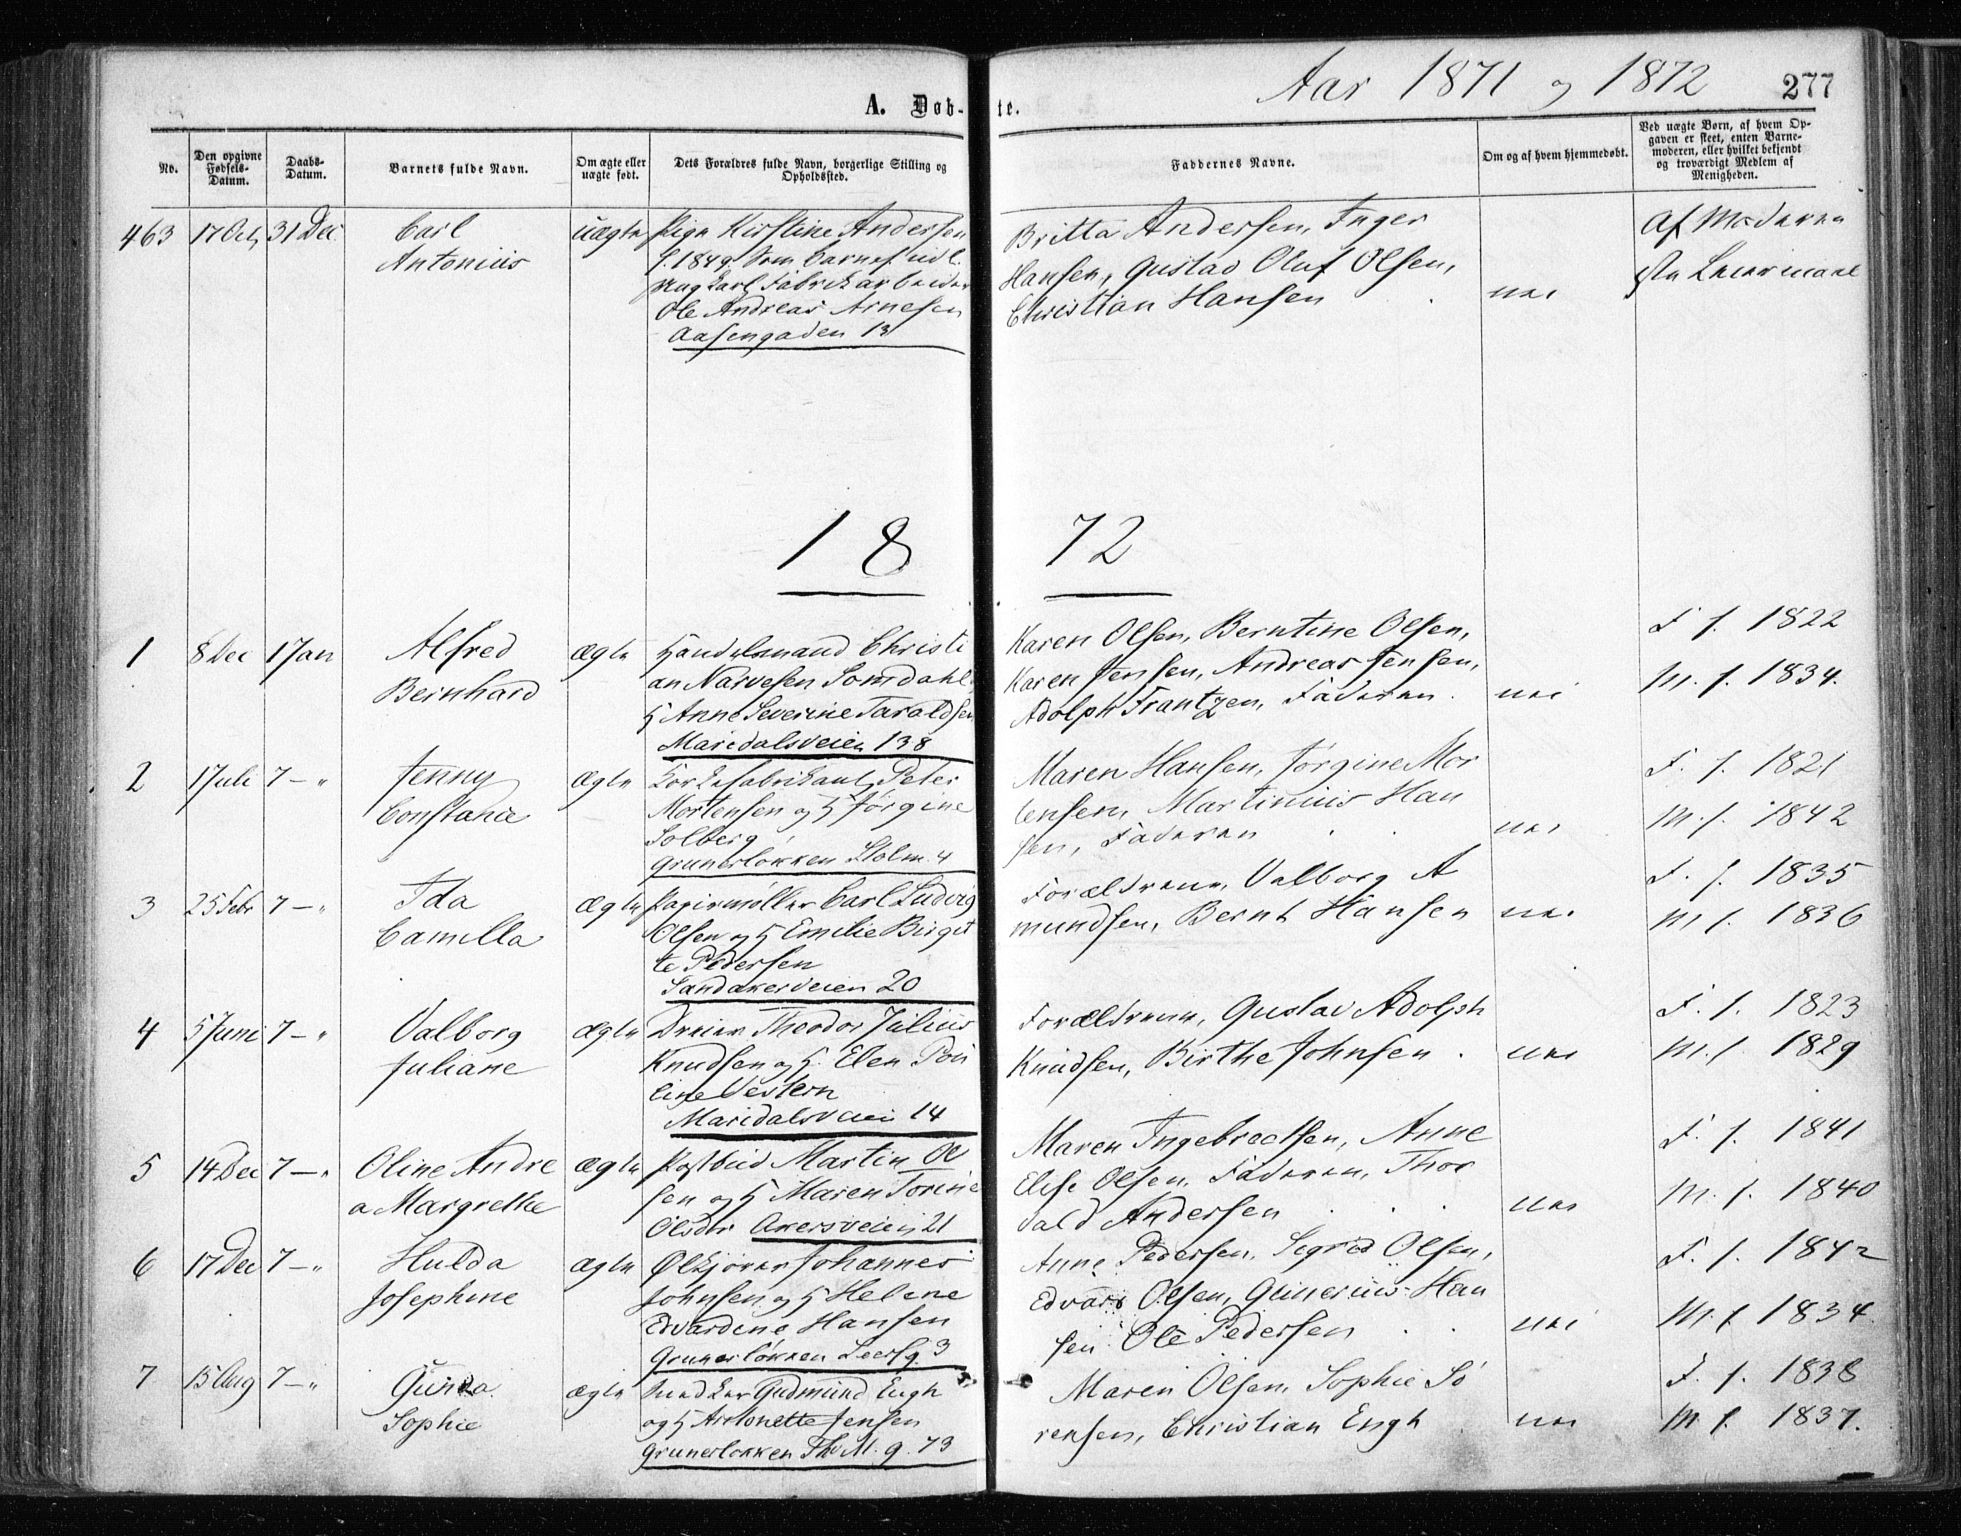 Aar 1871 og 1872
277
A. Døb-te.
No.
Den opgivne Fødsels-Datum.
Daabs-Datum.
Barnets fulde Navn.
Om ægte eller uægte født.
Dets Forældres fulde Navn, borgerlige Stilling og Opholdssted.
Faddernes Navne.
Om og af hvem hjemmedøbt.
Ved uægte Børn, af hvem Opgaven er skeet, enten Barnemoderen, eller hvilket bekjendt og troværdigt Medlem af Menigheden.
463 17 Oct 31 Dec. Carl uægte Pige Kirstine Andersen
Antonius f. 1849 Som barnef. udl.
Ungkarl Fabrikarbeider
Ole Andreas Arnesen
Aasengaden 13
Britta Andersen, Inger
Hansen, Gustav Oluf Olsen,
Christian Hansen . nei
Af Moderen
1ste Leiermaal
18 72
1 8 Dec 1 Jan Alfred ægte Handelsmand Christi
Bernhard an Narvesen Somdahl
H Anne Severine Taraldsen
Maridalsveien 138
Karen Olsen, Berntine Olsen,
Karen Jensen, Andreas Jensen,
Adolph Frantzen, Faderen . nei
F f. 1822
M. f. 1834.
2 1 Juli 7 — " Jenny ægte Korkefabrikant Peter
Constance Mortensen og H Jørgine
Solberg
Grunerløkken Holm. 4
Maren Hansen, Jørgine Mor
tensen, Martinius Han
sen, Faderen . . nei
F. f. 1821
M. f. 1842
3 25 Febr 7 — " Ida ægte Papirmøller Carl Ludvig
Camilla Olsen og H Emilie Birgit
te Pedersen
Sandakerveien 20
Forældrene, Valborg A
mundsen, Bernt Hansen nei
F. f. 1835
M f. 1836
4 5 Juni 7 — " Valborg ægte Dreier Theodor Julius
Juliane Knudsen og H. Elen Pou
line Vestern
Maridalsveien 14
Forældrene, Gustav Adolph
Knudsen, Birthe Johnsen . nei
F. f. 1823
M. f. 1829
5 14 Dec 7 — " Oline Andre ægte Postbud Martin Ol
a Margrethe sen og H Maren Torine
Olsdr Akersveien 21
Maren Ingebrectsen, Anne
Elise Olsen, Faderen, Thor
vald Andersen . . . nei
F. f. 1841
M. f. 1840
6 17 Dec 7 — " Hulda ægte Ølkjører Johannes
Josephine Johnsen og H Helene
Edvardine Hansen
Grunerløkken Leersg. 3
Anne Pedersen, Segrid Olsen,
Edvard Olsen, Gunerius Han
sen Ole Pedersen . . nei
F. f. 1842
M. f 1834.
7 15 Aug 7 — " Gunda ægte Snedker Gudmund Engh
Sophie og H Antonette Jensen
Grunerløkken Th. M. g. 73
Maren Olsen, Sophie Sö
rensen, Christian Engh . nei
F. f. 1838
M f. 1837.